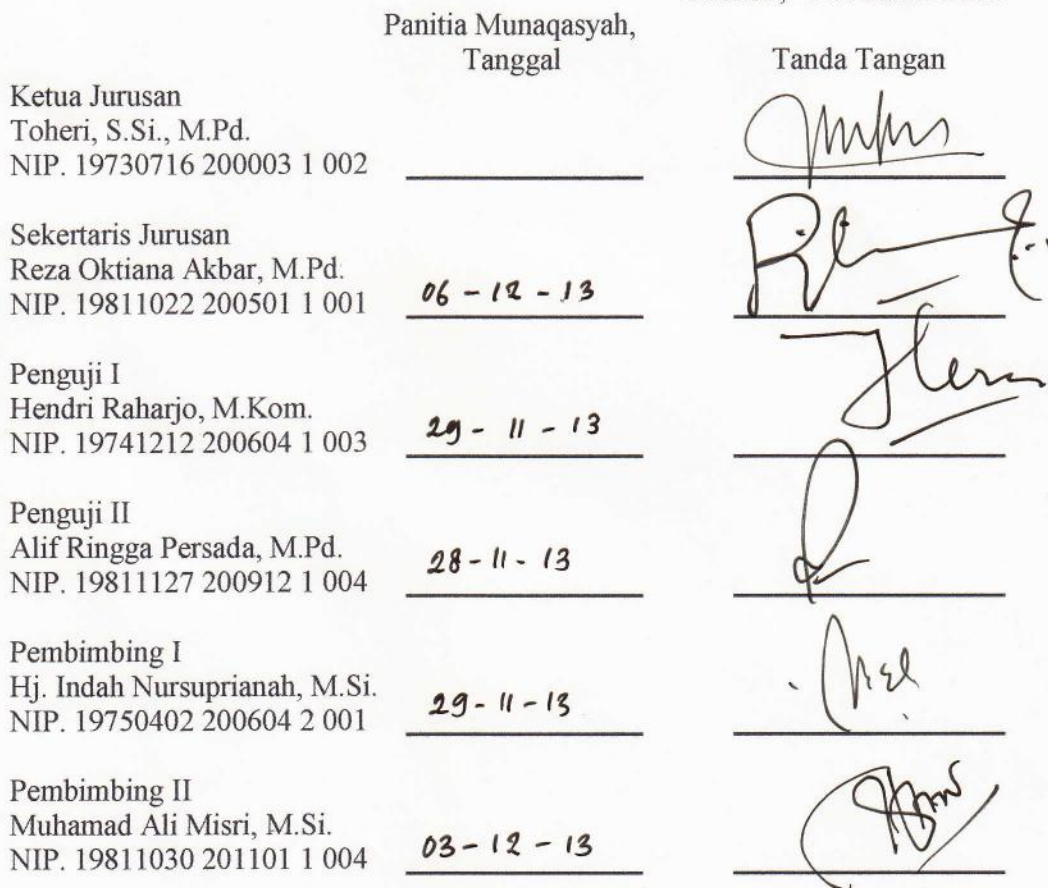 Panitia Munaqasyah,
Tanggal Tanda Tangan
Ketua Jurusan
Toheri, S.Si., M.Pd.
NIP. 19730716 200003 1 002
Sekertaris Jurusan
Reza Oktiana Akbar, M.Pd.
NIP. 19811022 200501 1 001 06 - 12 - 13
Penguji I
Hendri Raharjo, M.Kom.
NIP. 19741212 200604 1 003 29 - 11 - 13
Penguji II
Alif Ringga Persada, M.Pd.
NIP. 19811127 200912 1 004 28 - 11 - 13
Pembimbing I
Hj. Indah Nursuprianah, M.Si.
NIP. 19750402 200604 2 001 29 - 11 - 13
Pembimbing II
Muhamad Ali Misri, M.Si.
NIP. 19811030 201101 1 004 03 - 12 - 13